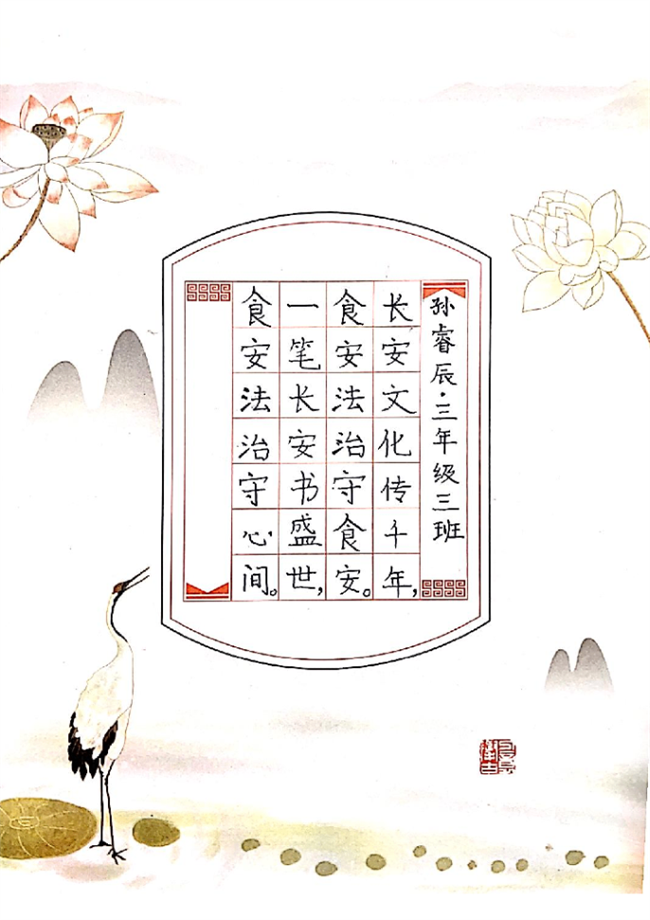 孙睿辰·三年级三班
长安文化传千年，
食安法治守食安。
一笔长安书盛世，
食安法治守心间。